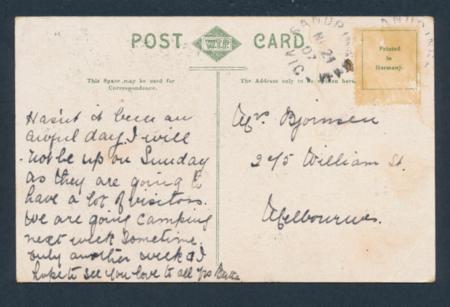 POST CARD.
This Space may be used for
Correspondence.
The Address only to be written here.
Printed
in
Germany.
SANDRIN
VIC
Hasn't it been an
awful day. I will
not be up on Sunday
as they are going to
have a lot of visitors.
We are going camping
next week sometime.
only another week & I
hope to see you love to all yrs
Mrs Bjornsen
275 William St.
Melbourne.